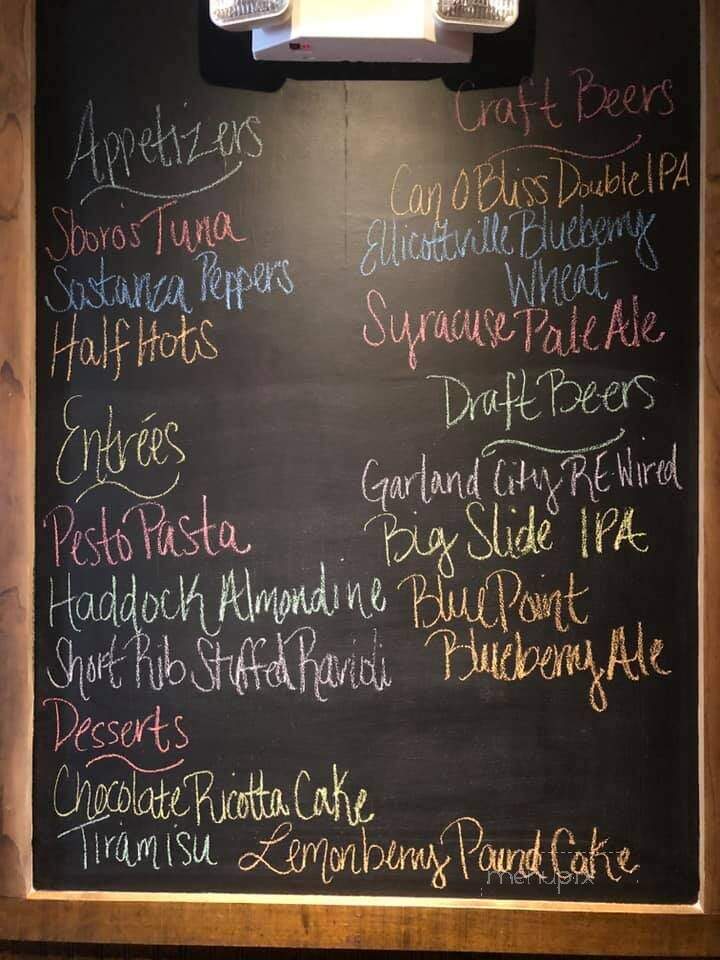 Appetizers
Sboro's Tuna
Sostanza Peppers
Half Hots
Entrées
Pesto Pasta
Haddock Almondine
Short Rib Stuffed Ravioli
Desserts
Chocolate Ricotta Cake
Tiramisu
Lemonberry Pound Cake
Craft Beers
Can O Bliss Double IPA
Ellicottville Blueberry
Wheat
Syracuse Pale Ale
Draft Beers
Garland City RE Wired
Big Slide IPA
Blue Point
Blueberry Ale
menupix